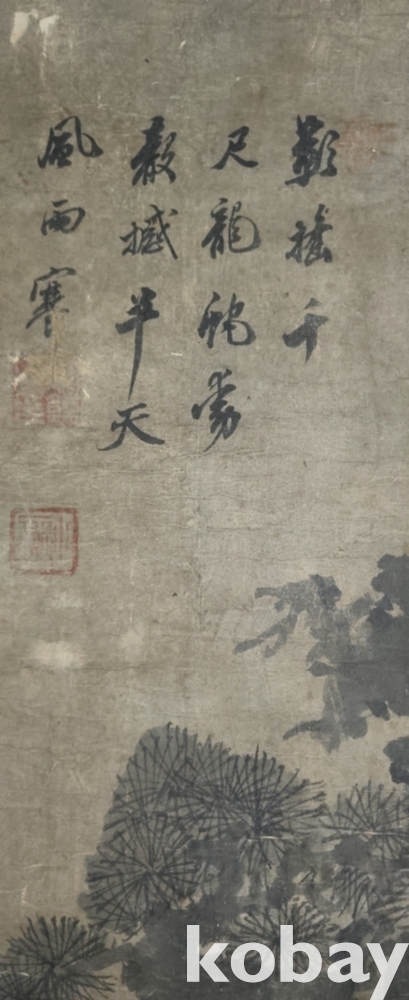 影搖千
尺龍蛇動
聲撼半天
風雨寒
kobay